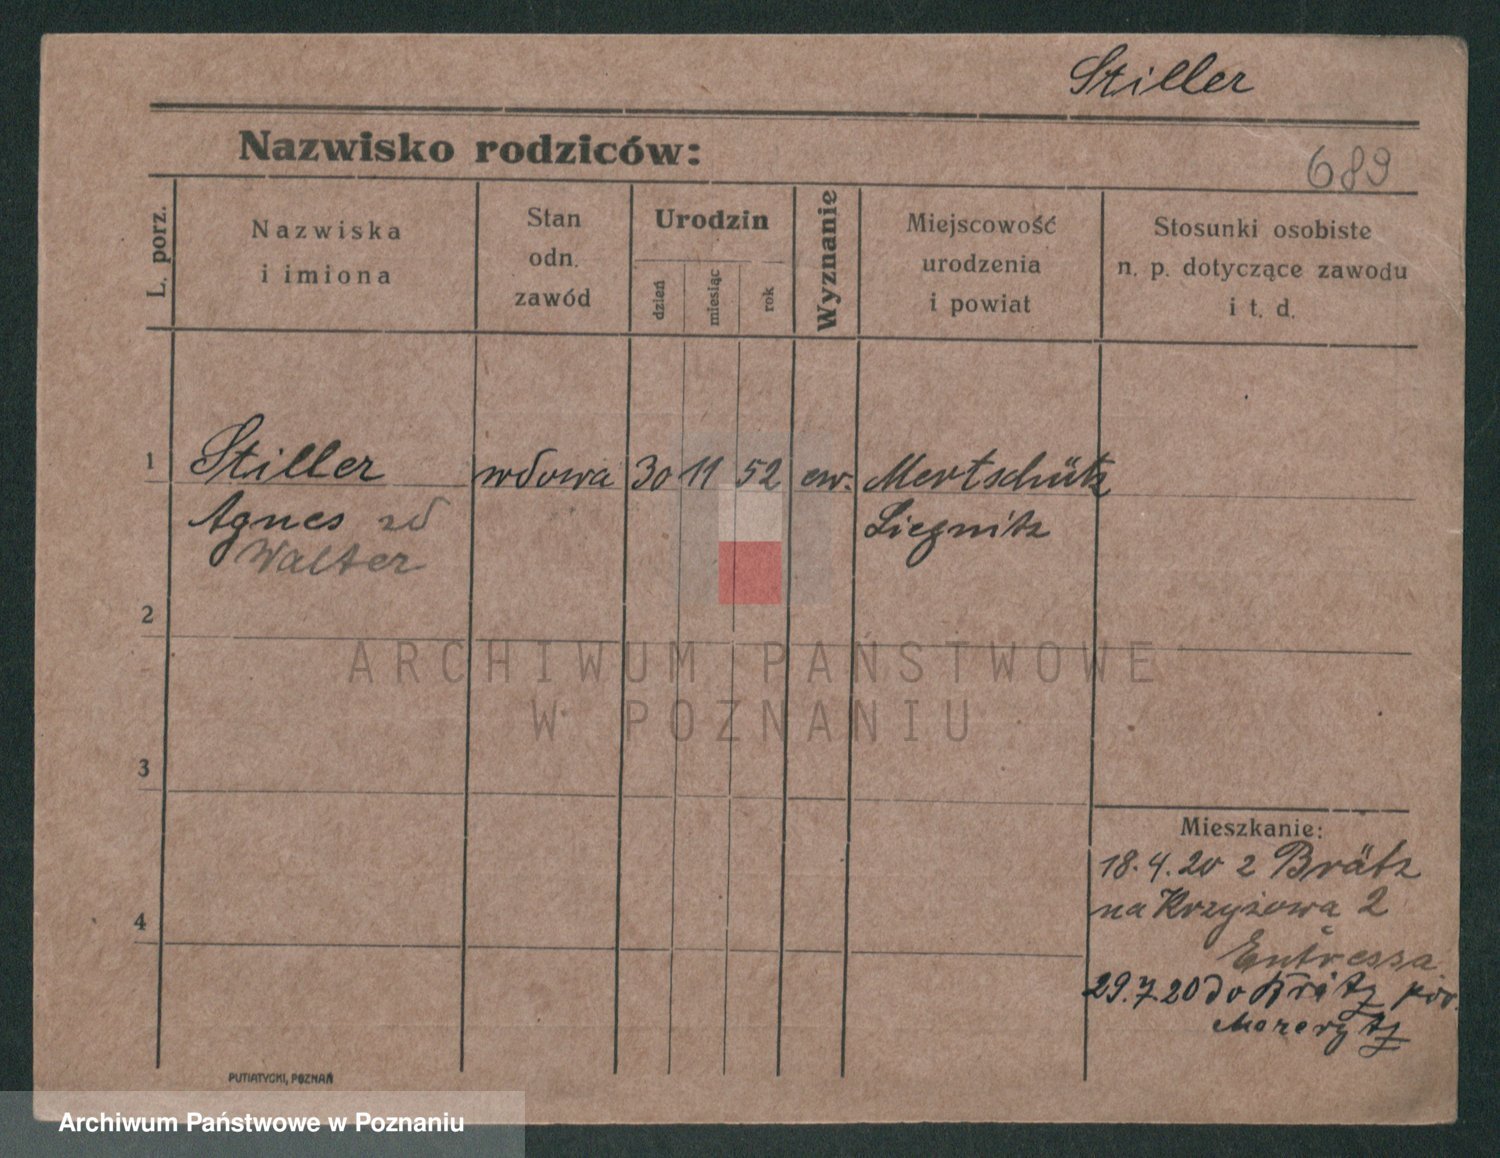 Stiller
Nazwisko rodziców:
689
L. porz.
Nazwiska
i imiona
Stan
odn.
zawód
Urodzin
dzień
miesiąc
rok
Wyznanie
Miejscowość
urodzenia
i powiat
Stosunki osobiste
n. p. dotyczące zawodu
i t. d.
1 Stiller wdowa 30 11 52 ew. Mertschütz
Agnes zd Liegnitz
Walter
2
ARCHIWUM PAŃSTWOWE
W POZNANIU
3
Mieszkanie:
18.4.20 z Brätz
na Krzyżowa 2
4
29.7.20 do Brätz pow.
Mezerytz
PUTIATYCKI, POZNAŃ
Archiwum Państwowe w Poznaniu